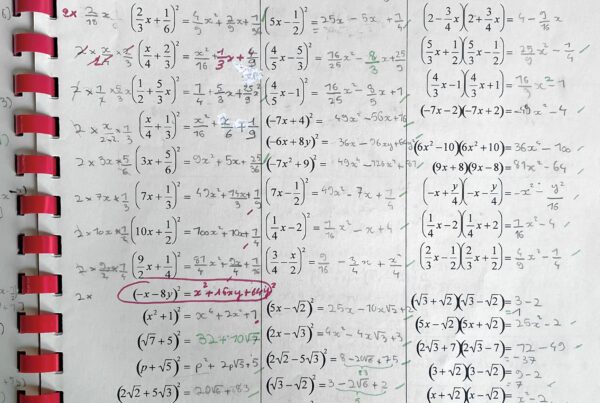 (2/3 x + 1/6)² = 4/9 x² + 2/9 x +
(x/4 + 2/3)² = x²/16 + 1/3 x + 4/9
(1/2 + 5/3 x)² = 1/4 + 5/3 x + 25/9 x²
(x/4 + 1/3)² = x²/16 + x/6 + 1/9
2 × 3x × 5/6 (3x + 5/6)² = 9x² + 5x + 25/36
2 × 7x × 1/3 (7x + 1/3)² = 49x² + 14x/3 + 1/9
2 × 10x × 1/2 (10x + 1/2)² = 100x² + 10x + 1/4
(9/2 x + 1/4)² = 81/4 x² + 9x/4 + 1/16
2 × (-x - 8y)² = x² + 16xy + 64y²
(x² + 1)² = x⁴ + 2x² + 1
(√7 + 5)² = 32 + 10√7
(p + √5)² = p² + 2p√5 + 5
(2√2 + 5√3)² = 20√6 + 83
(5x - 1/2)² = 25x² - 5x + 1/4
(4/5 x - 5/3)² = 16/25 x² - 8/3 x + 25/9
(4/5 x - 1)² = 16/25 x² - 8/5 x + 1
(-7x + 4)² = 49x² - 56x + 16
(-6x + 8y)² = 36x² - 96xy + 64y²
(-7x² + 9)² = 49x⁴ - 126x² + 81
(7x - 1/2)² = 49x² - 7x + 1/4
(1/4 x - 2)² = 1/16 x² - x + 4
(3/4 - x/2)² = 9/16 - 3/4 x + x²/4
(5x - √2)² = 25x² - 10x√2 +
(2x - √3)² = 4x² - 4x√3 + 3
(2√2 - 5√3)² = 8 - 20√6 + 75
83
(√3 - √2)² = 3 - 2√6 + 2
5
(2 - 3/4 x)(2 + 3/4 x) = 4 - 9/16 x²
(5/3 x + 1/2)(5/3 x - 1/2) = 25/9 x² - 1/4
(4/3 x - 1)(4/3 x + 1) = 16/3 x² - 1
(-7x - 2)(-7x + 2) = 49x² - 4
(6x² - 10)(6x² + 10) = 36x⁴ - 100
(9x + 8)(9x - 8) = 81x² - 64
(-x + y/4)(-x - y/4) = -x² - y²/16
(1/4 x - 2)(1/4 x + 2) = 1/16 x² - 4
(2/3 x - 1/2)(2/3 x + 1/2) = 4/9 x² - 1/4
(√3 + √2)(√3 - √2) = 3 - 2
= 1
(5x - √2)(5x + √2) = 25x² - 2
(2√3 + 7)(2√3 - 7) = 12 - 49
= -37
(3 + √2)(3 - √2) = 9 - 2
= 7
(x + √2)(x - √2) = x² - 2